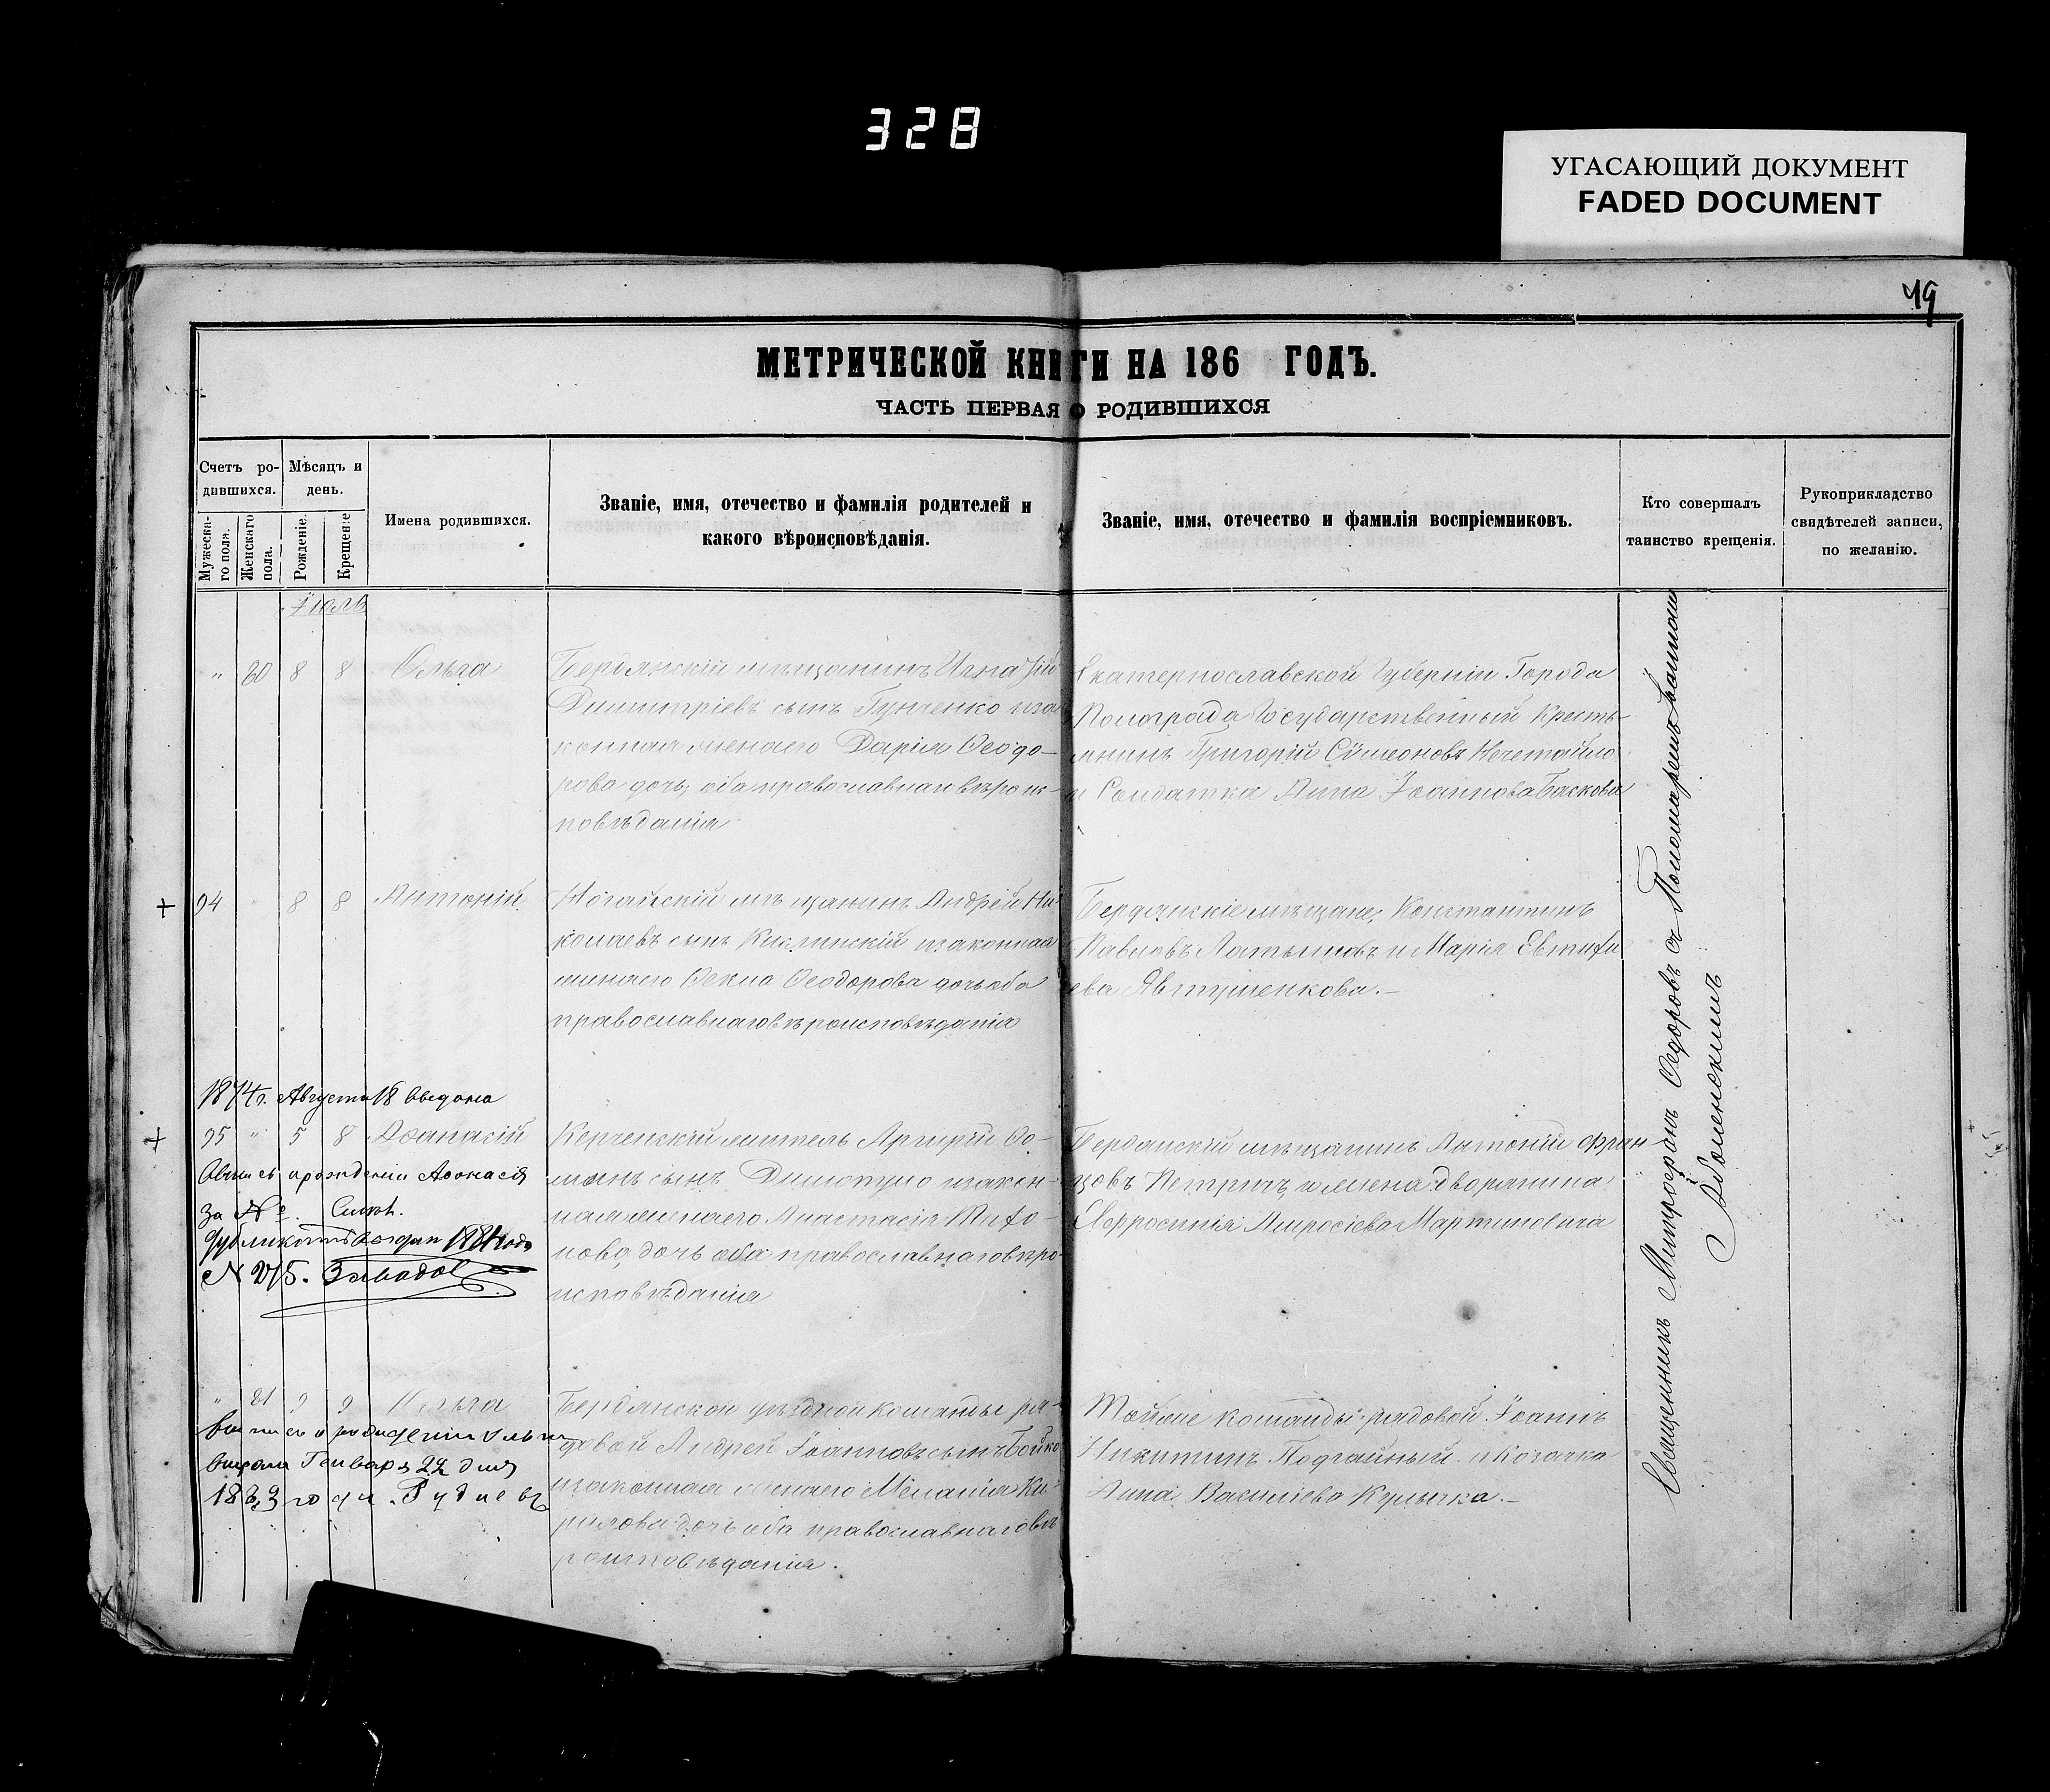 328
УГАСАЮЩИЙ ДОКУМЕНТ
FADED DOCUMENT
49
МЕТРИЧЕСКОЙ КНИГИ НА 186 ГОДЪ.
ЧАСТЬ ПЕРВАЯ О РОДИВШИХСЯ
Счетъ ро-
дившихся.
Мѣсяцъ и
день.
Мужеска-
го пола.
Женскаго
пола.
Рожденіе.
Крещеніе
Имена родившихся.
Званіе, имя, отечество и фамилія родителей и
какого вѣроисповѣданія.
Званіе, имя, отечество и фамилія воспріемниковъ.
Кто совершалъ
таинство крещенія.
Рукоприкладство
свидѣтелей записи,
по желанію.
Іюль
" 80 8 8 Ольга
Бердянскій мѣщанинъ Игнатій
Димитріевъ сынъ Гунченко иза-
конная жена его Дарія Ѳеодо-
рова дочь, оба православнаго вѣроис-
повѣданія
Екатеринославской Губерніи Города
Государственный Кресть-
янинъ Григорій Сѵмеоновъ Нечетайло
и Солдатка Анна Іоаннова Баскова
+ 94 " 8 8 Антоній
Ногайскій мѣщанинъ Андрей Ни-
колаевъ сынъ изаконная
жена его Ѳекла Ѳеодорова дочь оба
православнаго вѣроисповѣданія
Бердянскіе мѣщане, Константинъ
Павловъ и Марія Евтихі-
ева Явтушенкова.—
1874г. Августа 18 выдана
+ 95 " 5 8 Аѳанасій
о рожденіи Аѳонасія
за №.
выдан 1881 года
№ 275.
Керченскій житель Аргирій Ѳо-
минъ сынъ изакон-
ная жена его Анастасія
нова дочь оба православнаго вѣро-
исповѣданія
Бердянскій мѣщанинъ Антоній Фран-
цовъ Петричъ и жена дворянина
Евфросинія Амвросіева Мартиновича
" 81 9 9 Ольга
о рожденіи Ольги
выдана Генваря 22 дня
1883 года.
Бердянской уѣздной команды ря-
довой Андрей Іоанновъ сынъ Бойко
изаконная жена его Меланія Ки-
рилова дочь оба православнаго вѣ-
роисповѣданія.
Тойже команды рядовой Іоаннъ
Никитинъ Подгайный и Козачка
Анна Василіева
Священникъ Митрофанъ Ѳедоровъ съ Пономаремъ